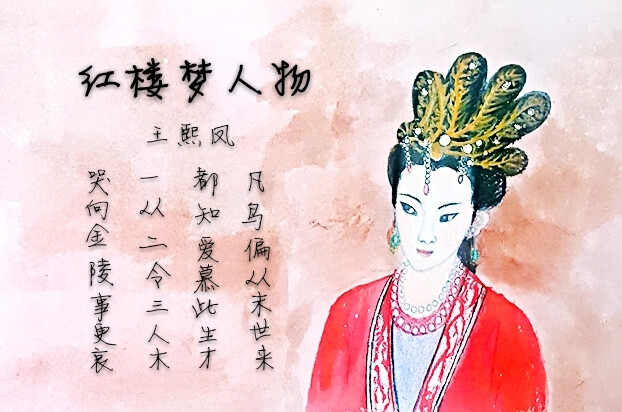 红楼梦人物
王熙凤
凡鸟偏从末世来
都知爱慕此生才
一从二令三人木
哭向金陵事更哀